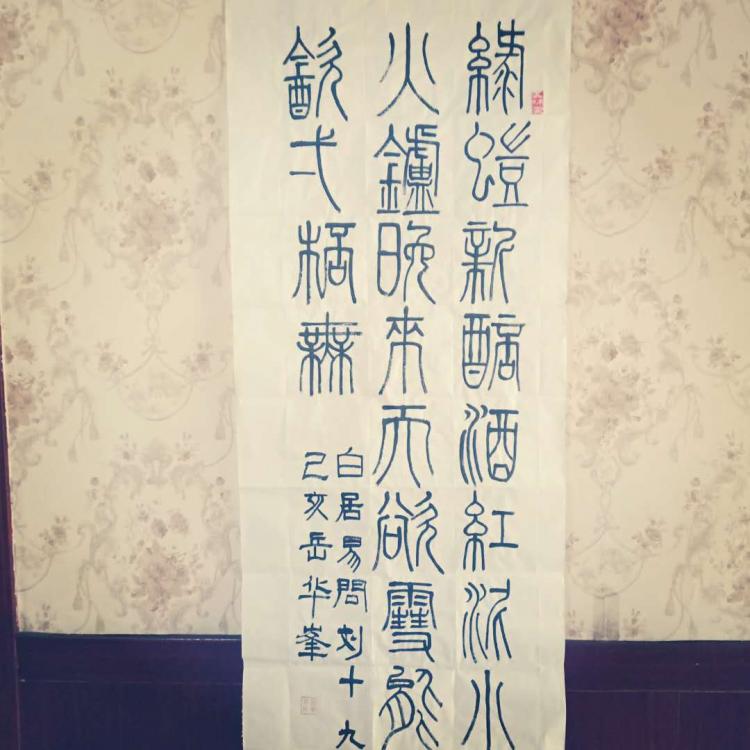 綠螘新醅酒紅泥小
火鑪晚來天欲雪能
飲弌桮無
白居易問刘十九
己亥岳华峯